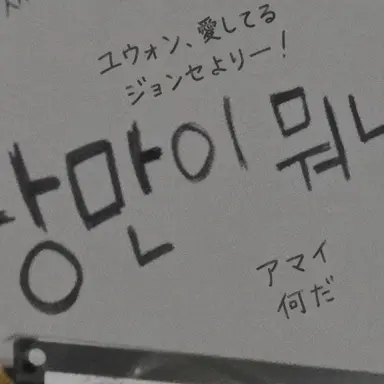 ユウォン、愛してる
ジョンセよりー!
만이 뭐
アマイ
何だ